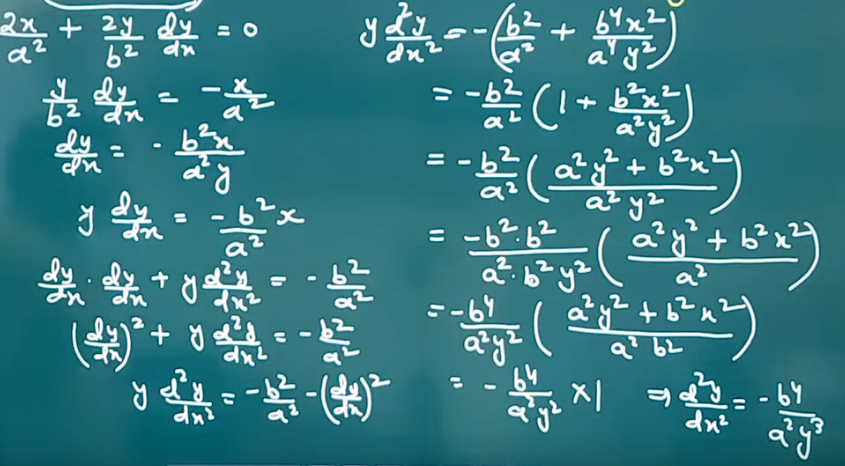 2x/a² + 2y/b² dy/dx = 0
y/b² dy/dx = -x/a²
dy/dx = - b²x/a²y
y dy/dx = -b²/a² x
dy/dx · dy/dx + y d²y/dx² = - b²/a²
(dy/dx)² + y d²y/dx² = - b²/a²
y d²y/dx² = - b²/a² - (dy/dx)²
y d²y/dx² = -(b²/a² + b⁴x²/a⁴y²)
= -b²/a² (1 + b²x²/a²y²)
= -b²/a² (a²y² + b²x²/a²y²)
= -b²·b²/a²·b²y² (a²y² + b²x²/a²)
= -b⁴/a²y² (a²y² + b²x²/a² b²)
= - b⁴/a²y² × 1 ⇒ d²y/dx² = -b⁴/a²y³